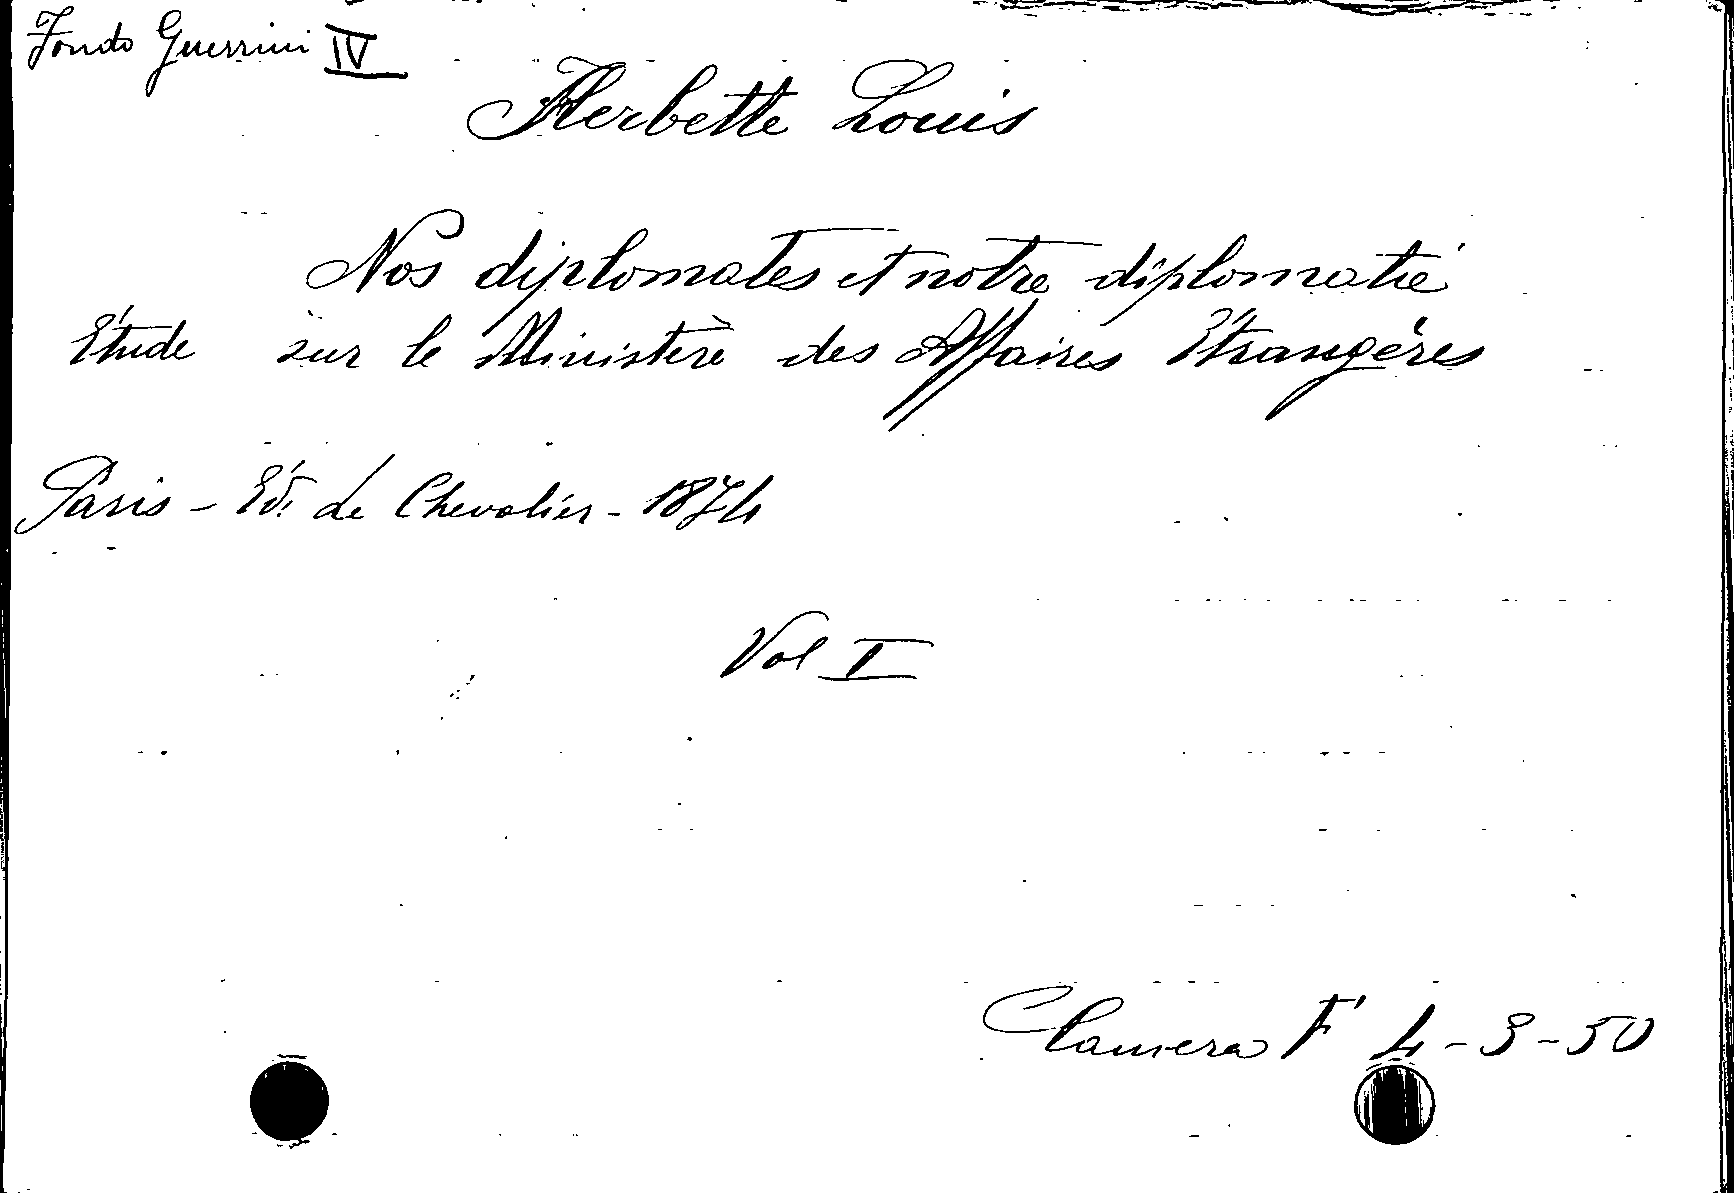 Fondo Guerrini IV
Herbette Louis
Nos diplomates et notre diplomatie
Étude sur le Ministère des Affaires Étrangères
Paris - Éd. de Chevalier - 1874
Vol I
Camera F 4-3-50